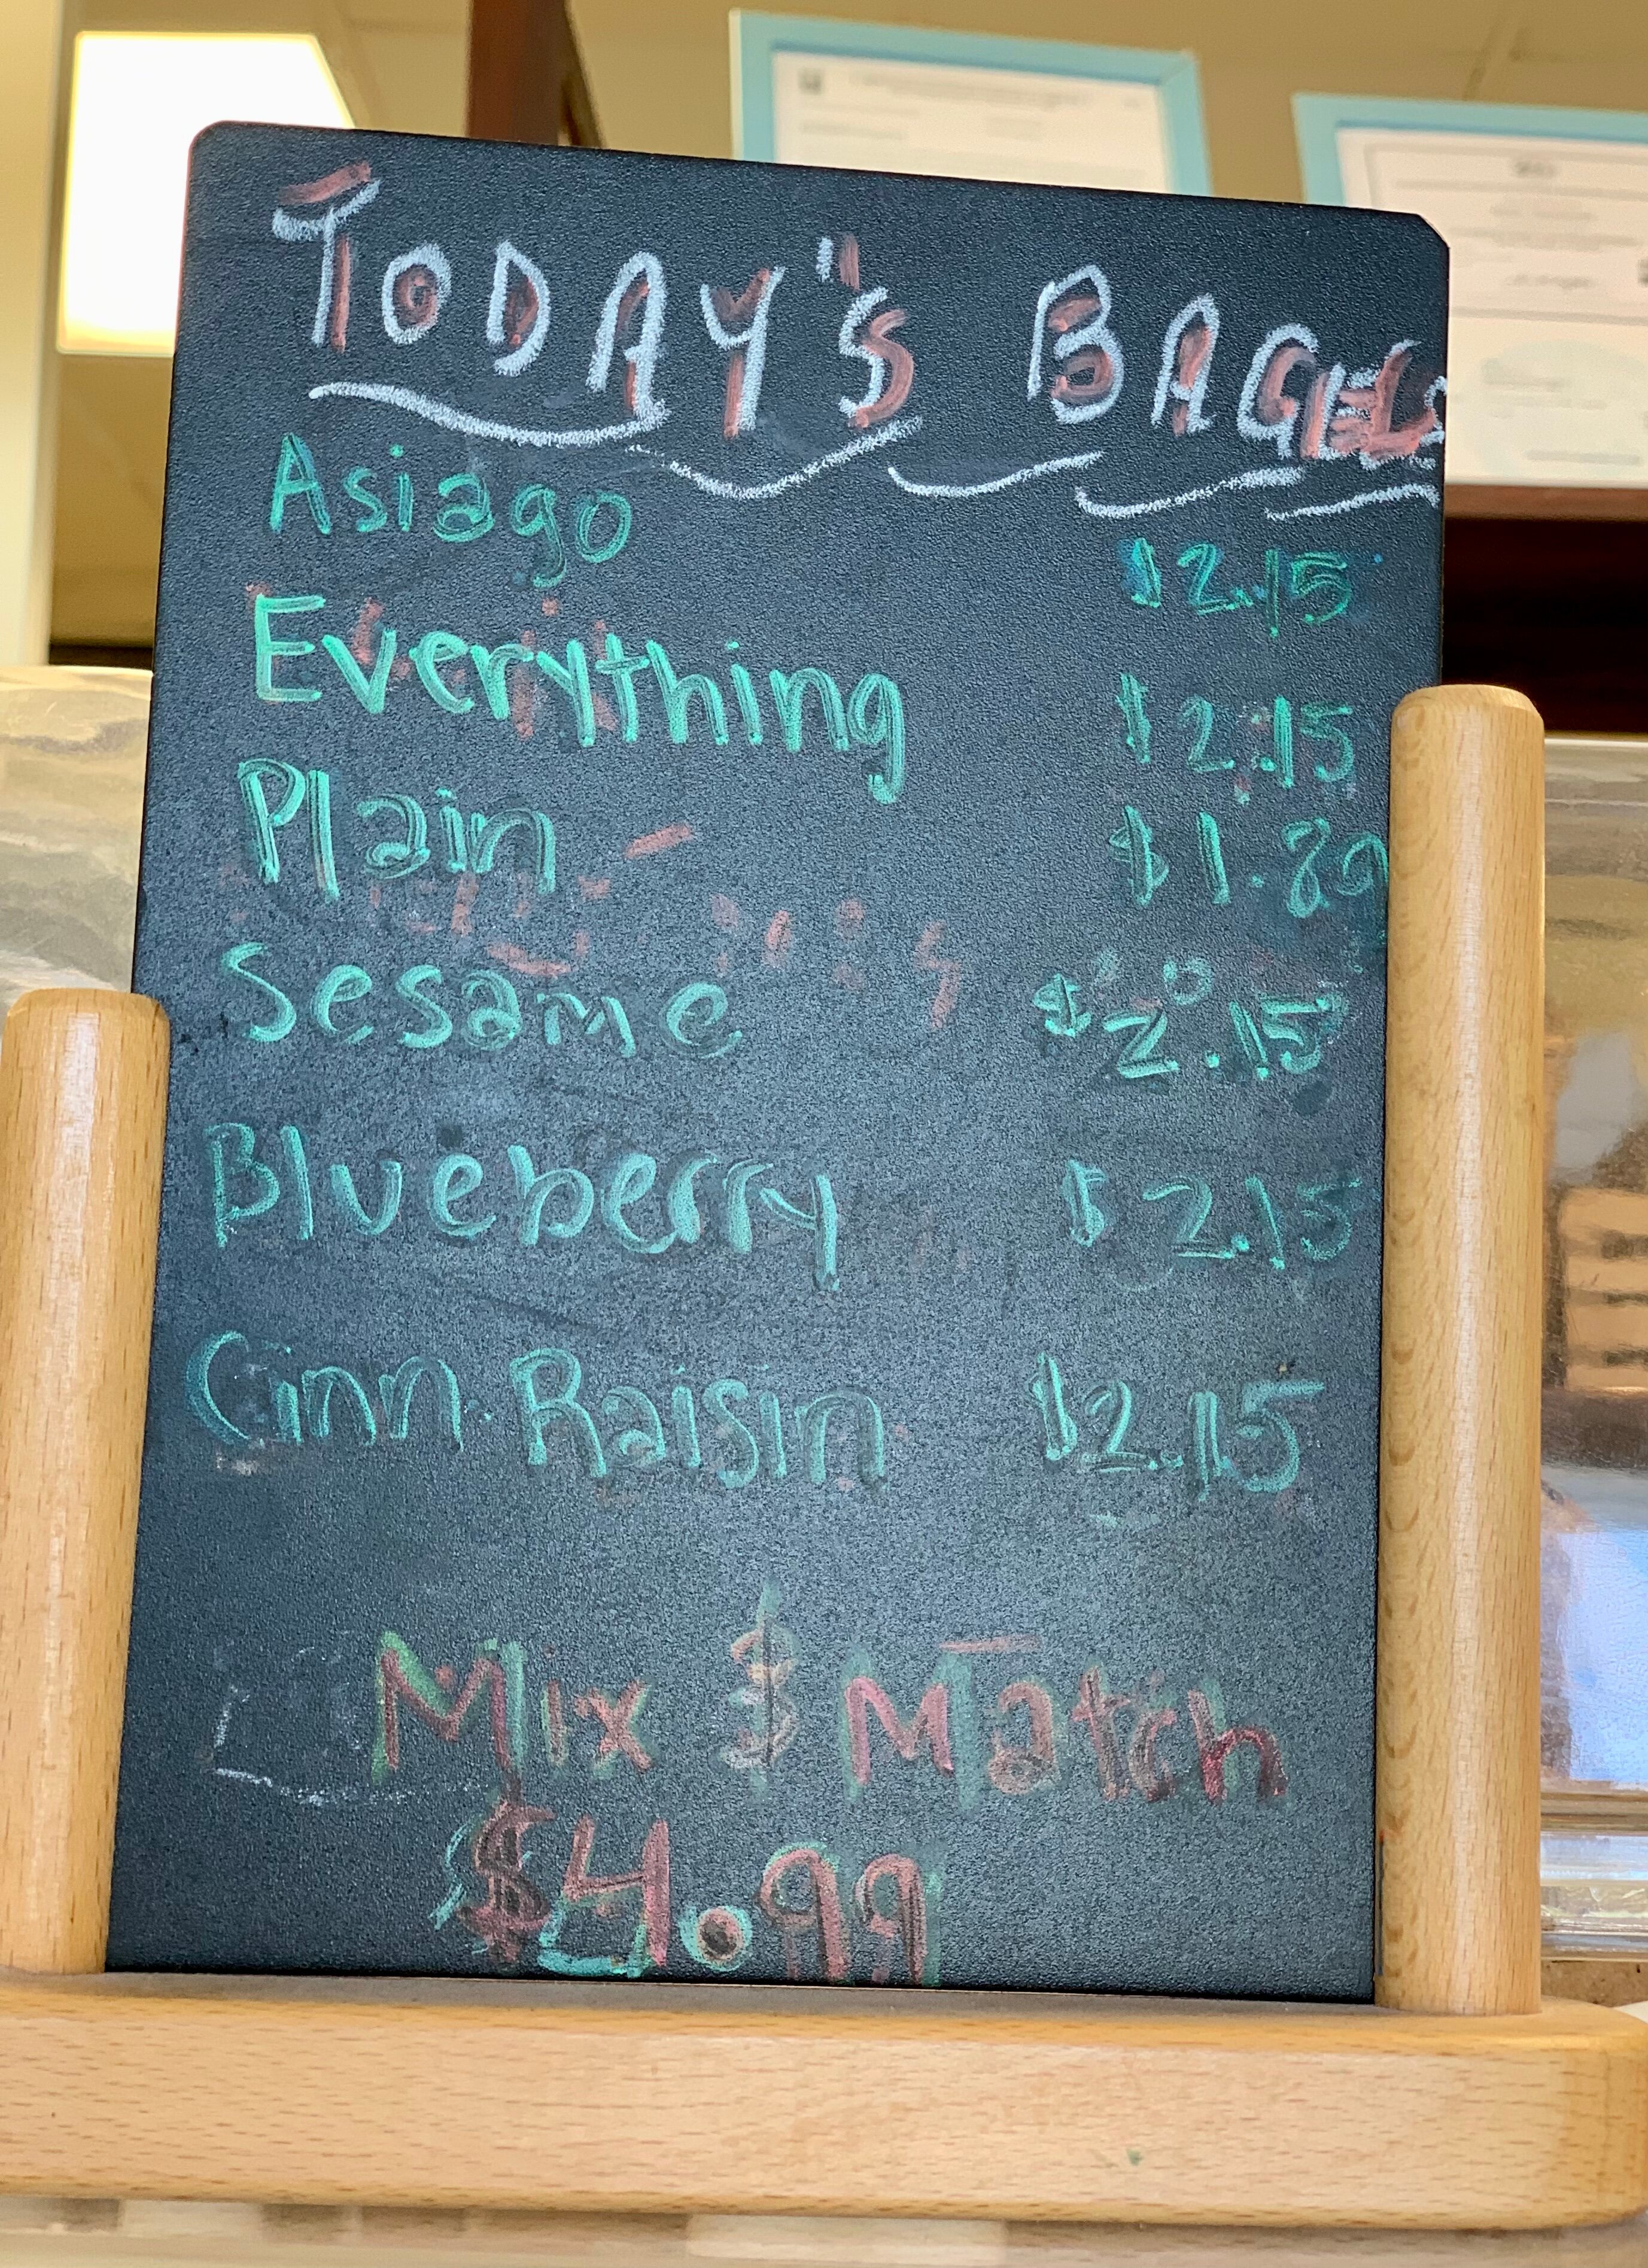 TODAY'S BAGELS
Asiago $2.15
Everything $2.15
Plain $1.89
Sesame $2.15
Blueberry $2.15
Cinn Raisin $2.15
Mix & Match
$4.99